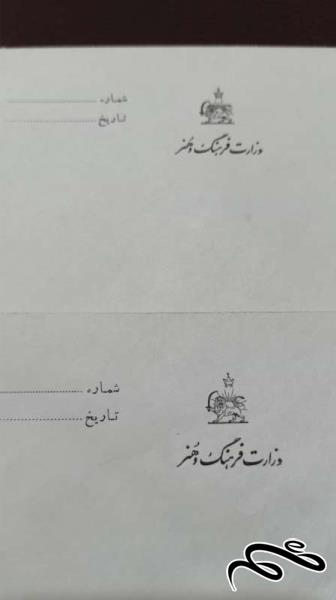 شماره
تاریخ
وزارت فرهنگ و هنر
شماره
تاریخ
وزارت فرهنگ و هنر